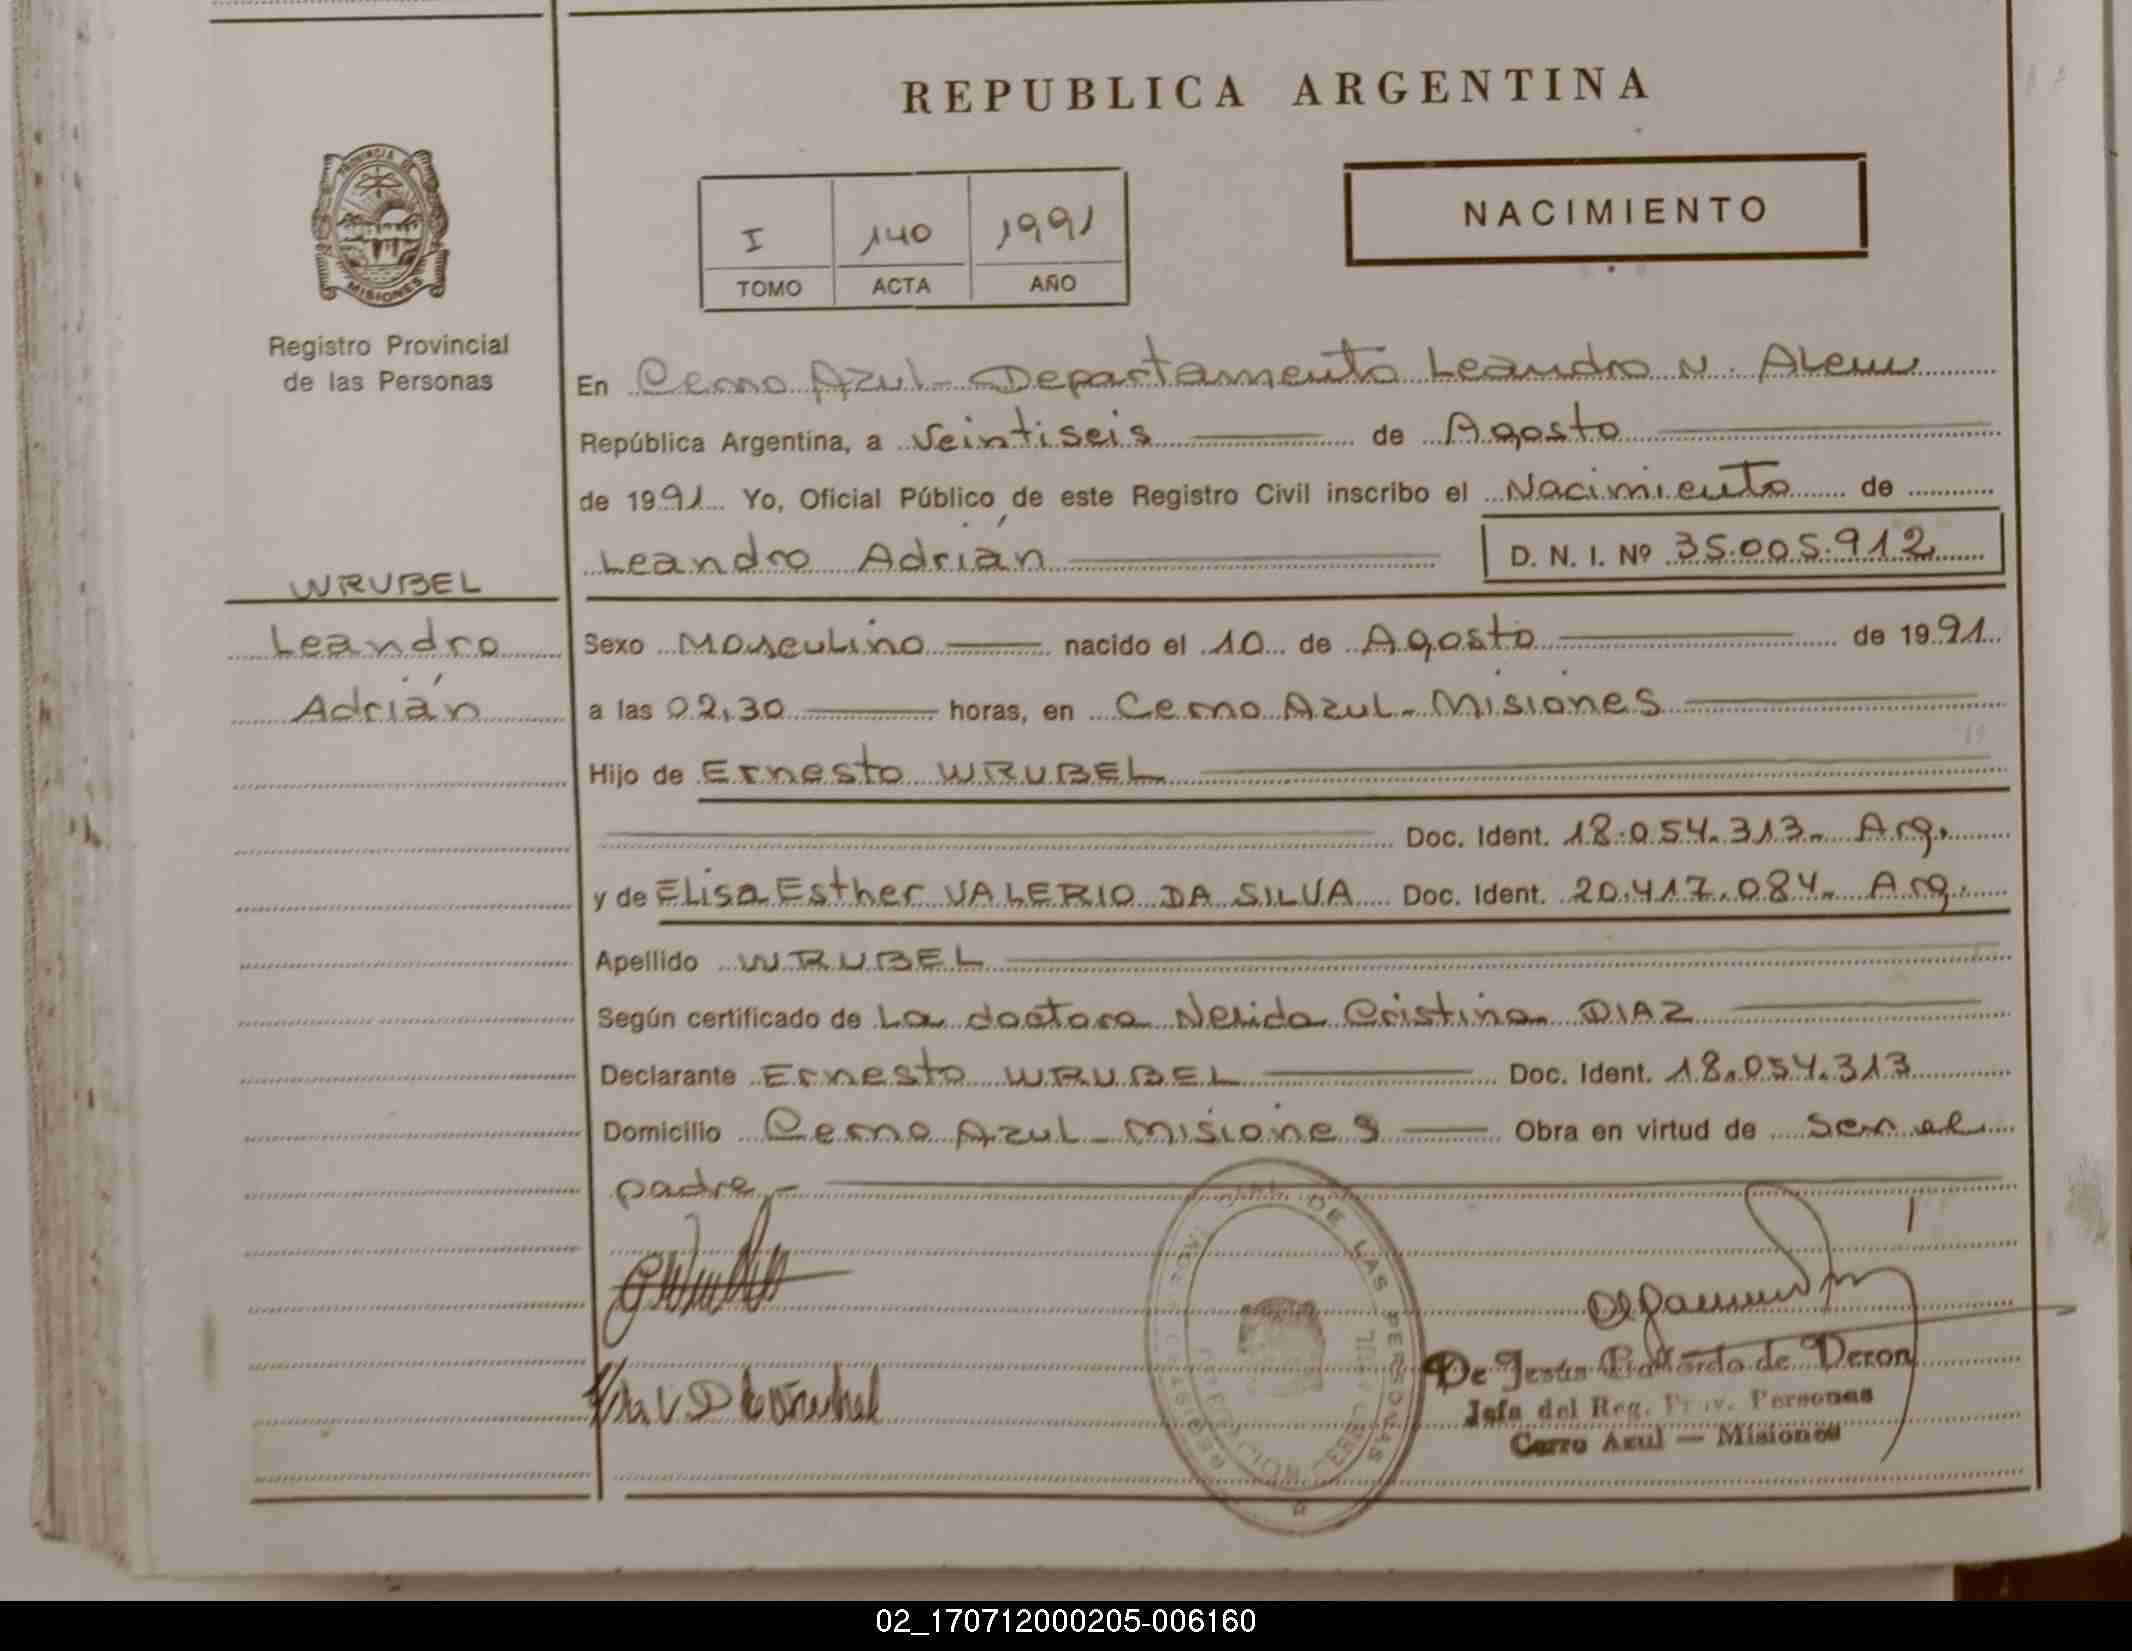 REPUBLICA ARGENTINA
PROVINCIA DE MISIONES
Registro Provincial
de las Personas
I 140 1991
TOMO ACTA AÑO
NACIMIENTO
En Cerro Azul - Departamento Leandro N. Alem
República Argentina, a Veintiseis de Agosto
de 1991 Yo, Oficial Público de este Registro Civil inscribo el Nacimiento de
Leandro Adrián D. N. I. Nº 35.005.912
WRUBEL
Leandro
Adrián
Sexo Masculino nacido el 10 de Agosto de 1991
a las 02,30 horas, en Cerro Azul - Misiones
Hijo de Ernesto WRUBEL
Doc. Ident. 18.054.313 - Arg.
y de Elisa Esther VALERIO DA SILVA Doc. Ident. 20.417.084 - Arg.
Apellido WRUBEL
Según certificado de La doctora Nelida Cristina DIAZ
Declarante Ernesto WRUBEL Doc. Ident. 18.054.313
Domicilio Cerro Azul - Misiones Obra en virtud de Ser el
padre.-
DE LAS PERSONAS
De Jesús Gallardo de Deron
Jefa del Reg. Prov. Personas
Cerro Azul — Misiones
02_170712000205-006160